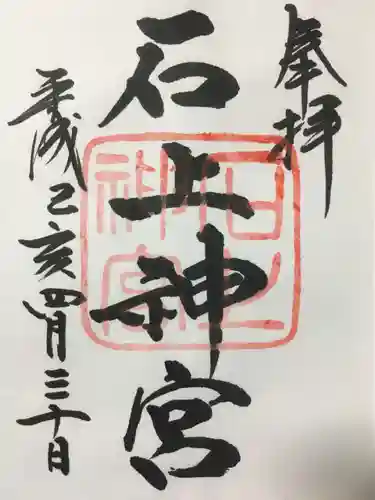 奉拝
石上神宮
平成己亥四月三十日
石上神宮